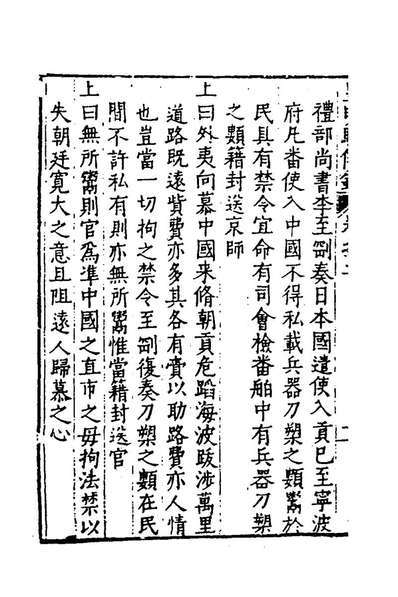 禮部尚書李至剛奏日本國遣使入貢已至寧波
府凡番使入中國不得私載兵器刀槊之類鬻於
民具有禁令宜命有司會檢番舶中有兵器刀槊
之類籍封送京師
上曰外夷向慕中國来脩朝貢危蹈海波跋涉萬里
道路既遠貲費亦多其各有賫以助路費亦人情
也豈當一切拘之禁令至剛復奏刀槊之類在民
間不許私有則亦無所鬻惟當籍封送官
上曰無所鬻則官爲凖中國之直市之毋拘法禁以
失朝廷寬大之意且阻遠人歸慕之心